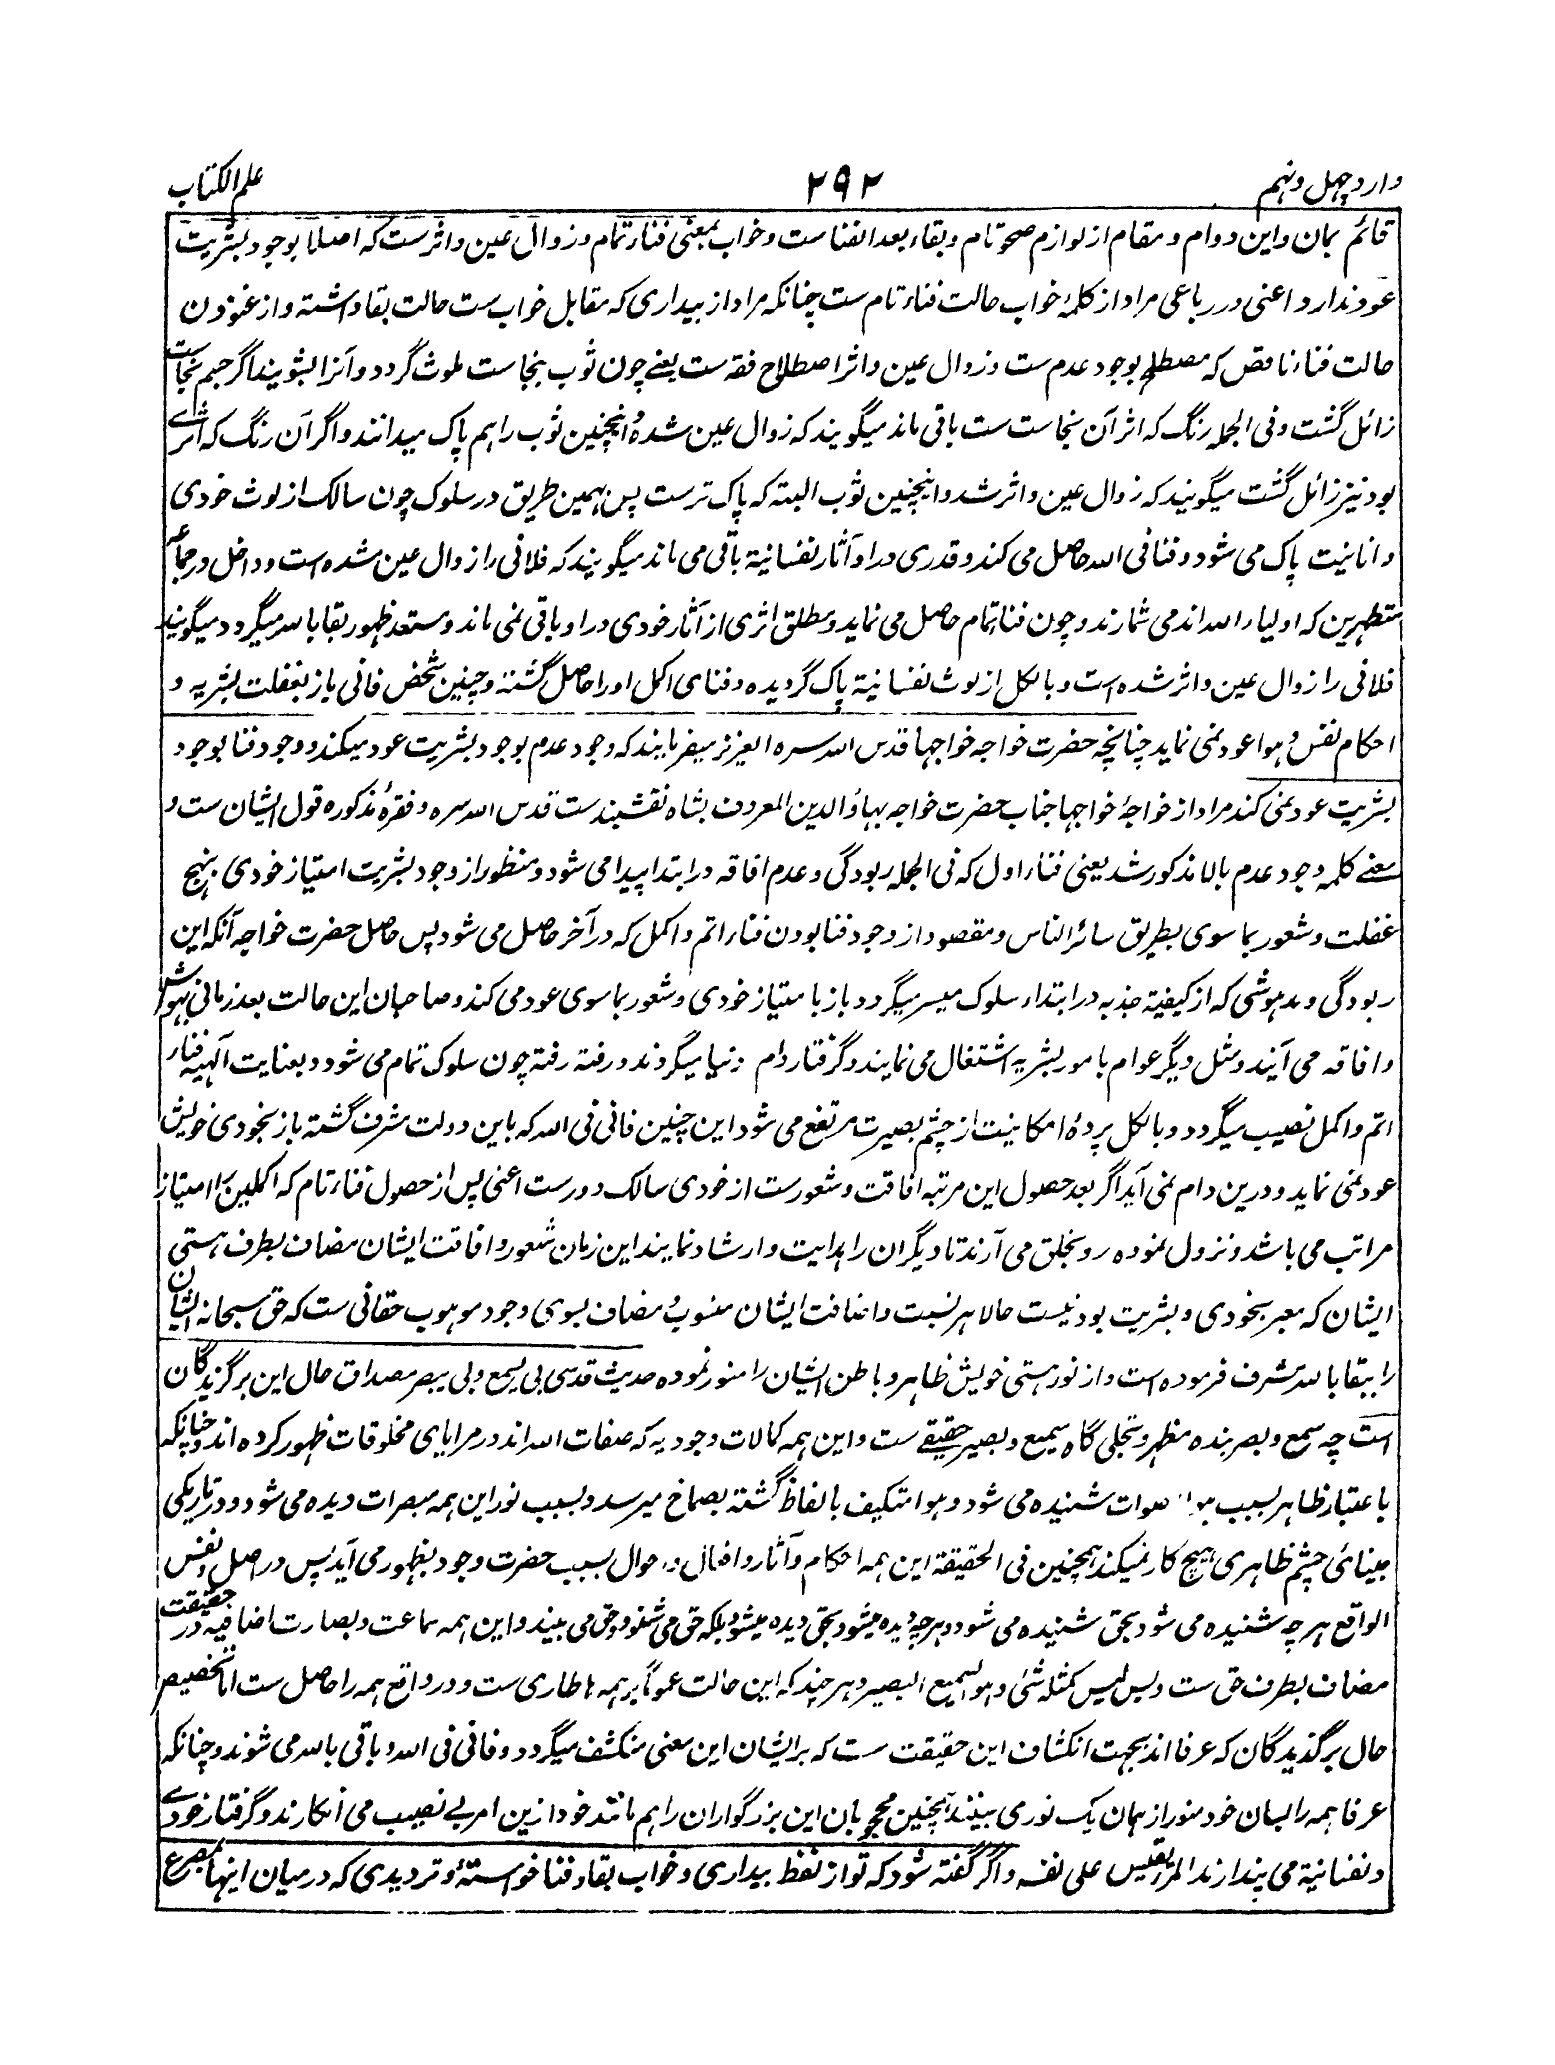 وارد چهل و نهم
۲۹۲
علم الکتاب
قائم بمان و این دوام و مقام از لوازم صحو تام و بقاء بعد الفناست و خواب بمعنی فناء تمام و زوال عین و اثرست که اصلا بوجود بشریت
عود ندارد اعنی در رباعی مراد از کلمهٔ خواب حالت فناء تام ست چنانکه مراد از بیداری که مقابل خواب ست حالت بقا داشته و از غنودن
حالت فناء ناقص که مصطلح بوجود عدم ست و زوال عین و اثر اصطلاح فقه ست یعنے چون ثوب بنجاست ملوث گردد و آنرا بشویند اگر جسم نجاست
زائل گشت و فی الجمله رنگ که اثر آن نجاست ست باقی ماند میگویند که زوال عین شده و اینچنین ثوب را هم پاک میدانند و اگر آن رنگ که اثرے
بود نیز زائل گشت میگویند که زوال عین و اثر شد و اینچنین ثوب البته که پاک ترست پس بهمین طریق در سلوک چون سالک از لوث خودی
و انانیت پاک می شود و فنا فی الله حاصل می کند و قدری در او آثار نفسانیة باقی می ماند میگویند که فلانی را زوال عین شده است و داخل در جماعه
متطهرین که اولیاء الله اند می شمارند و چون فناء تمام حاصل می نماید و مطلق اثری از آثار خودی در او باقی نمی ماند و مستعد ظهور بقا بالله میگردد میگویند
فلانی را زوال عین و اثر شده است و بالکل از لوث نفسانیة پاک گردیده و فنای اکمل او را حاصل گشته و چنین شخص فانی باز بغفلت بشریه و
احکام نفس و هوا عود نمی نماید چنانچه حضرت خواجه خواجها قدس الله سره العزیز میفرمایند که وجود عدم بوجود بشریت عود میکند و وجود فنا بوجود
بشریت عود نمی کند مراد از خواجهٔ خواجها جناب حضرت خواجه بهاؤ الدین المعروف بشاه نقشبند ست قدس الله سره و فقرهٔ مذکوره قول ایشان ست و
معنے کلمه وجود عدم بالا مذکور شد یعنی فناء اول که فی الجمله ربودگی و عدم افاقه در ابتدا پیدا می شود و منظور از وجود بشریت امتیاز خودی بنهج
غفلت و شعور بما سوی بطریق سائر الناس و مقصود از وجود فنا بودن فناء اتم و اکمل که در آخر حاصل می شود پس حاصل حضرت خواجه آنکه این
ربودگی و مدهوشی که از کیفیة جذبه در ابتداء سلوک میسر میگردد باز با متیاز خودی و شعور بما سوی عود می کند و صاحبان این حالت بعد زمانی بهوش
و افاقه می آیند و مثل دیگر عوام بامور بشریه اشتغال می نمایند و گرفتار دام دنیا میگردند و رفته رفته چون سلوک تمام می شود و بعنایت آلهیه فناء
اتم و اکمل نصیب میگردد و بالکل پردهٔ امکانیت از چشم بصیرت مرتفع می شود این چنین فانی فی الله که باین دولت مشرف گشته باز بخودی خویش
عود نمی نماید و درین دام نمی آید اگر بعد حصول این مرتبه افاقت و شعورست از خودی سالک دورست اعنی پس از حصول فناء تام که اکملین را امتیاز
مراتب می باشد و نزول نموده رو بخلق می آرند تا دیگران را هدایت و ارشاد نمایند این زمان شعور و افاقت ایشان مضاف بطرف هستی
ایشان که معبر بخودی و بشریت بود نیست حالا هر نسبت و اضافت ایشان منسوب و مضاف بسوی وجود موهوب حقانی ست که حق سبحانه ایشان
را ببقا بالله مشرف فرموده است و از نور هستی خویش ظاهر و باطن ایشان را منور نموده حدیث قدسی بی یسمع و بی یبصر مصداق حال این برگزیدگان
است چه سمع و بصر بنده مظهر و تجلی گاه سمیع و بصیر حقیقے ست و این همه کمالات وجودیه که صفات الله اند در مرایای مخلوقات ظهور کرده اند و چنانکه
باعتبار ظاهر بسبب هوا صوات شنیده می شود و هوا متکیف بالفاظ گشته بصماخ میرسد و بسبب نور این همه مبصرات دیده می شود و در تاریکی
بینائی چشم ظاهری هیچ کار نمیکند همچنین فی الحقیقة این همه احکام و آثار و افعال و احوال بسبب حضرت وجود بظهور می آید پس در اصل و نفس
الواقع هر چه شنیده می شود بحق شنیده می شود و هر چه دیده میشود بحق دیده میشود بلکه حق می شنود و حق می بیند و این همه سماعت و بصارت اضافیه در حقیقت
مضاف بطرف حق ست و بس لیس کمثله شئ و هو السمیع البصیر و هر چند که این حالت عموماً بر همه ها طاری ست و در واقع همه را حاصل ست اما تخصیص
حال برگذیدگان که عرفا اند بجهت انکشاف این حقیقت ست که بر ایشان این معنی منکشف میگردد و فانی فی الله و باقی بالله می شوند و چنانکه
عرفا همه را بسان خود منور از همان یک نوری بینند همچنین محجوبان این بزرگواران را هم مانند خود ازین امر بے نصیب می انکارند و گرفتار خودے
و نفسانیة می پندارند المرء یقیس علی نفسه و اگر گفته شود که تو از لفظ بیداری و خواب بقاء فنا خواستهٔ و تردیدی که درمیان اینها بمصرع